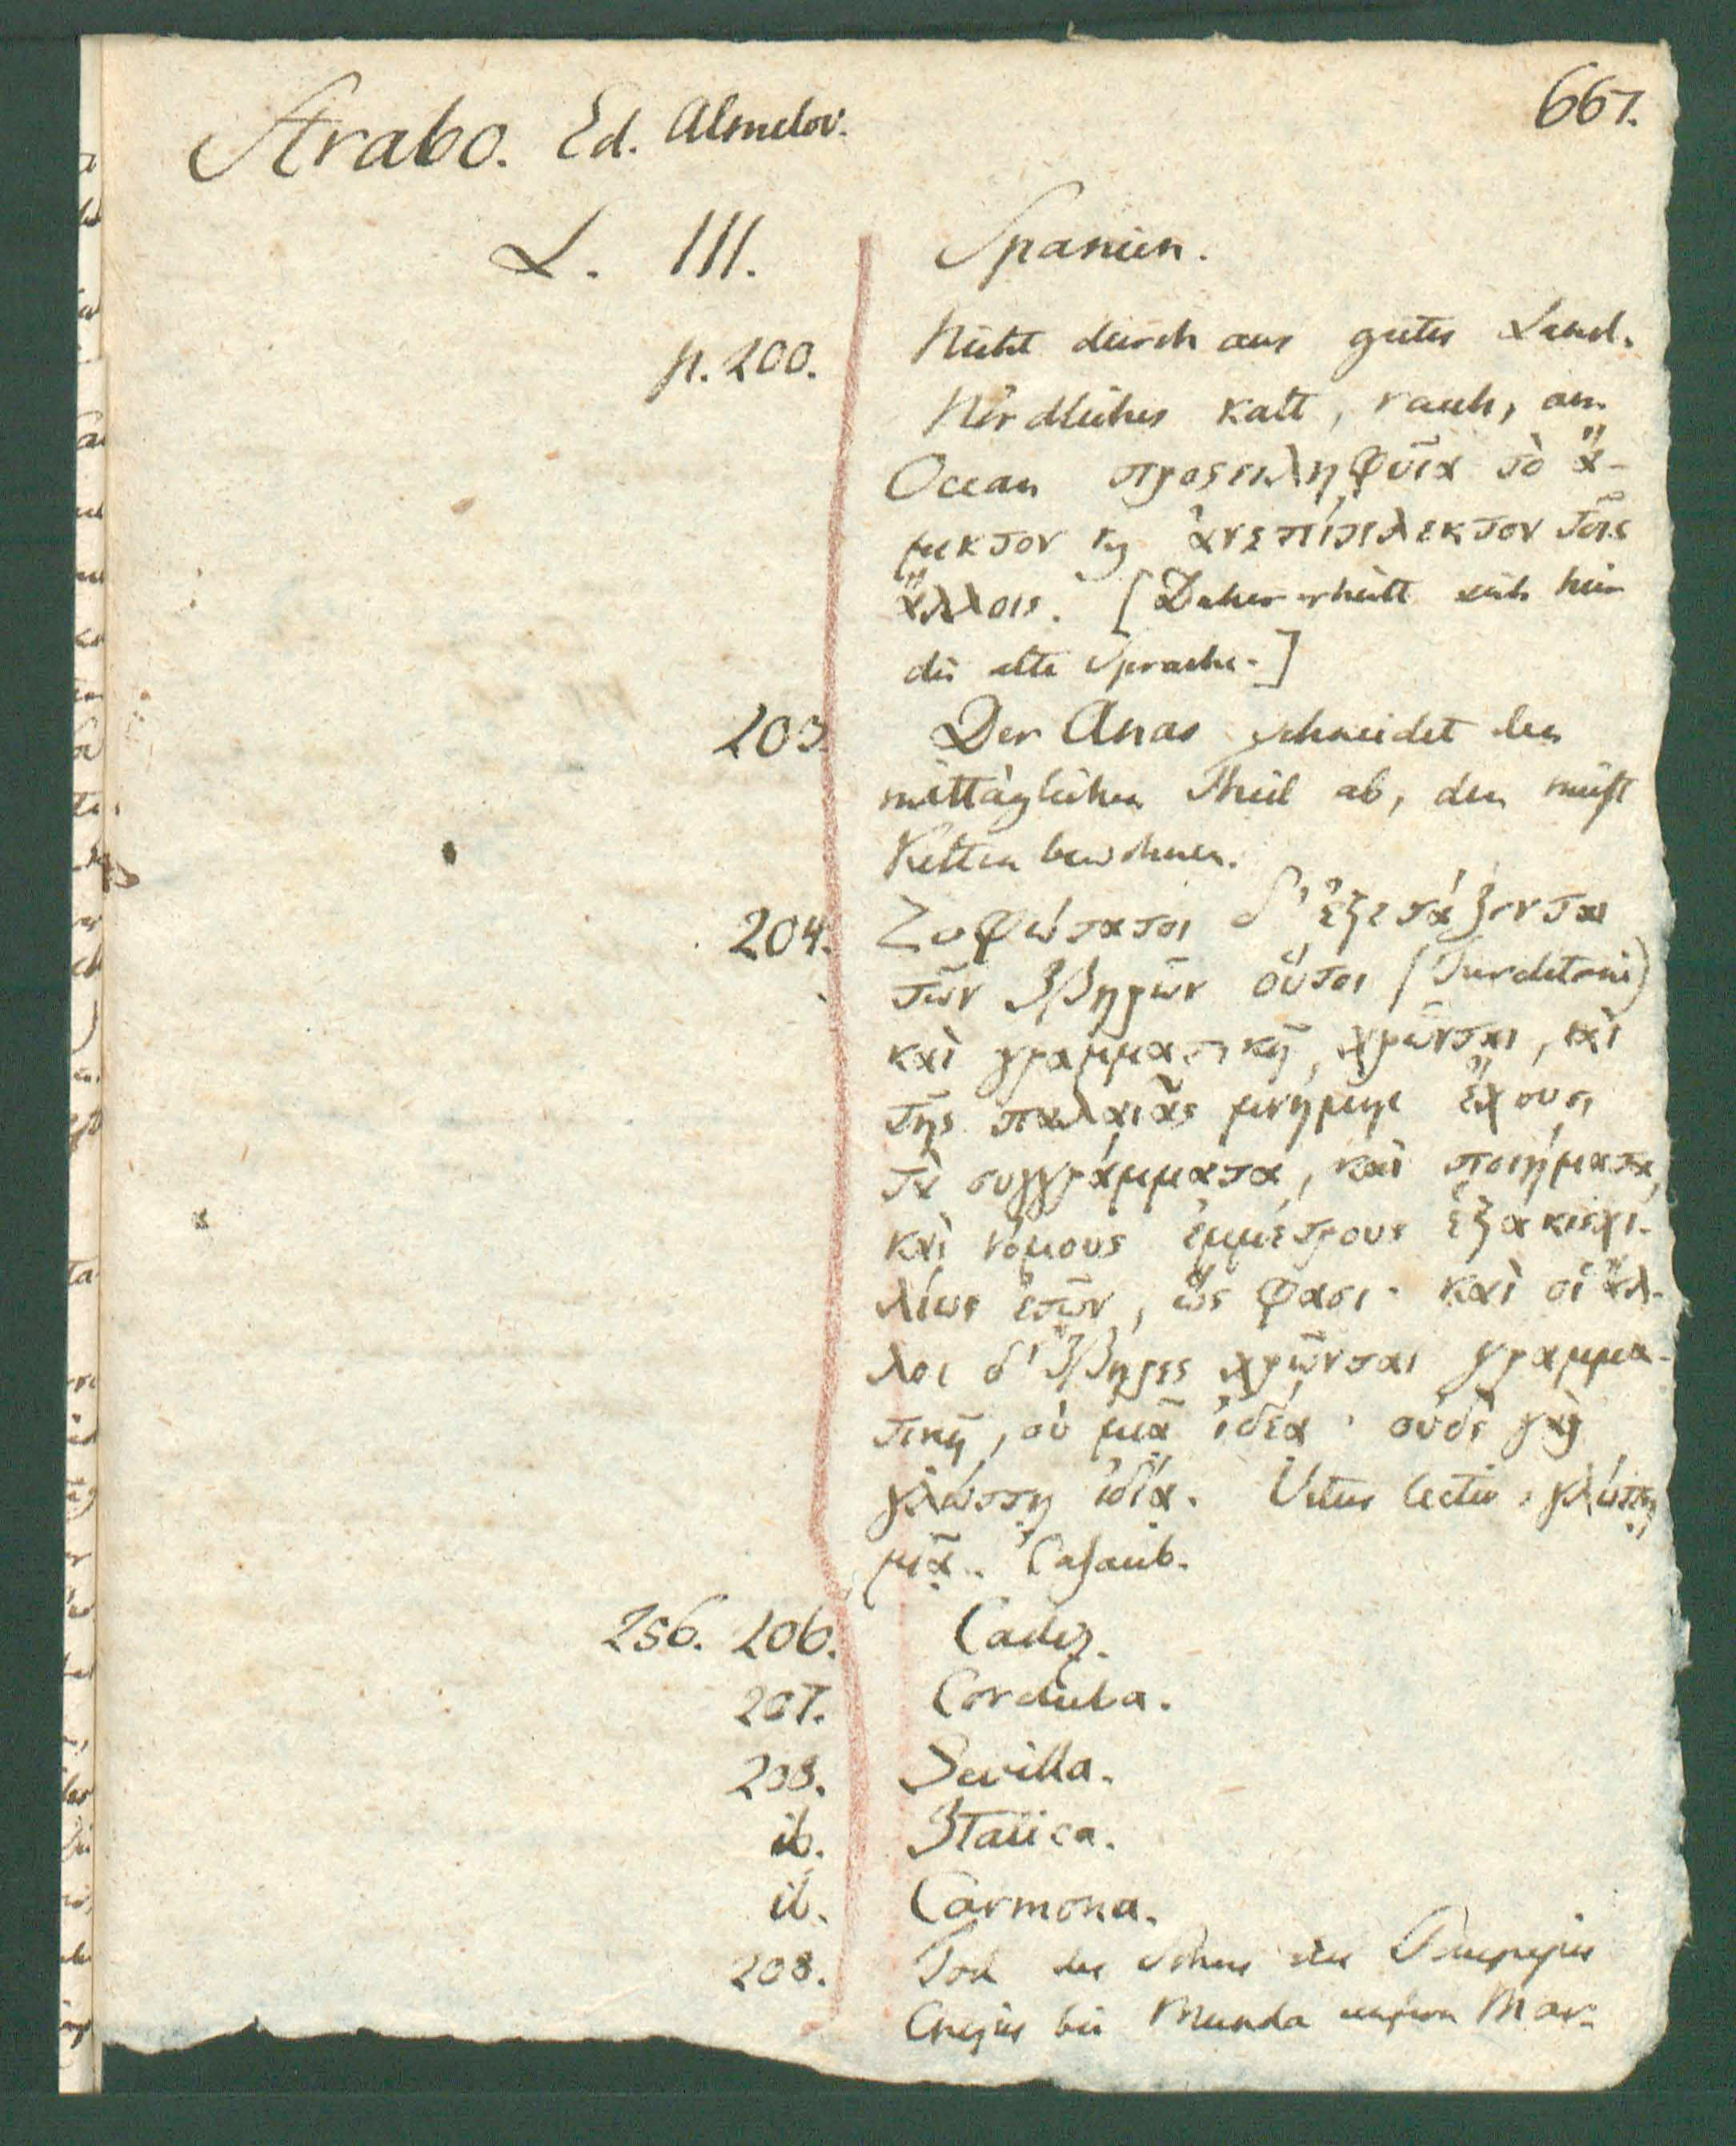 667.
Strabo. Ed. Almelov.
L. III. Spanien.
p. 200. Nicht durch aus gutes Land.
Nördliches kalt, rauh, am
Ocean προςειληφυῖα τὸ ἄ-
μικτον κ̀ ἀνεπίπλεκτον τοῖς
ἄλλοις. [Daher erhielt sich hier
die alte Sprache.]
203 Der Anas schneidet den
mittäglichen Theil ab, den meist
Kelten bewohnen.
204. Σοφώτατοι δ' ἐξετάζονται
τῶν Ἰβηρῶν οὗτοι (Turdetani)
καὶ γραμματικῇ χρῶνται, καὶ
τῆς παλαιᾶς μνήμης ἔχουσι
τὰ συγγράμματα, καὶ ποιήματα,
καὶ νόμους ἐμμέτρους ἑξακισχι-
λίων ἐτῶν, ὥς φασι· καὶ οἱ ἄλ-
λοι δ' Ἴβηρες χρῶνται γραμμα-
τικῇ, οὐ μιᾷ ἰδέᾳ· οὐδὲ γὰρ
γλώττῃ ἰδίᾳ. Vetus lectio, γλώττῃ
μιᾷ. Casaub.
256. 206. Cadiz.
207. Corduba.
208. Sevilla.
ib. Italica.
ib. Carmona.
208. Tod des Sohns des Pompejus
Cnejus bei Munda unfern Mar-